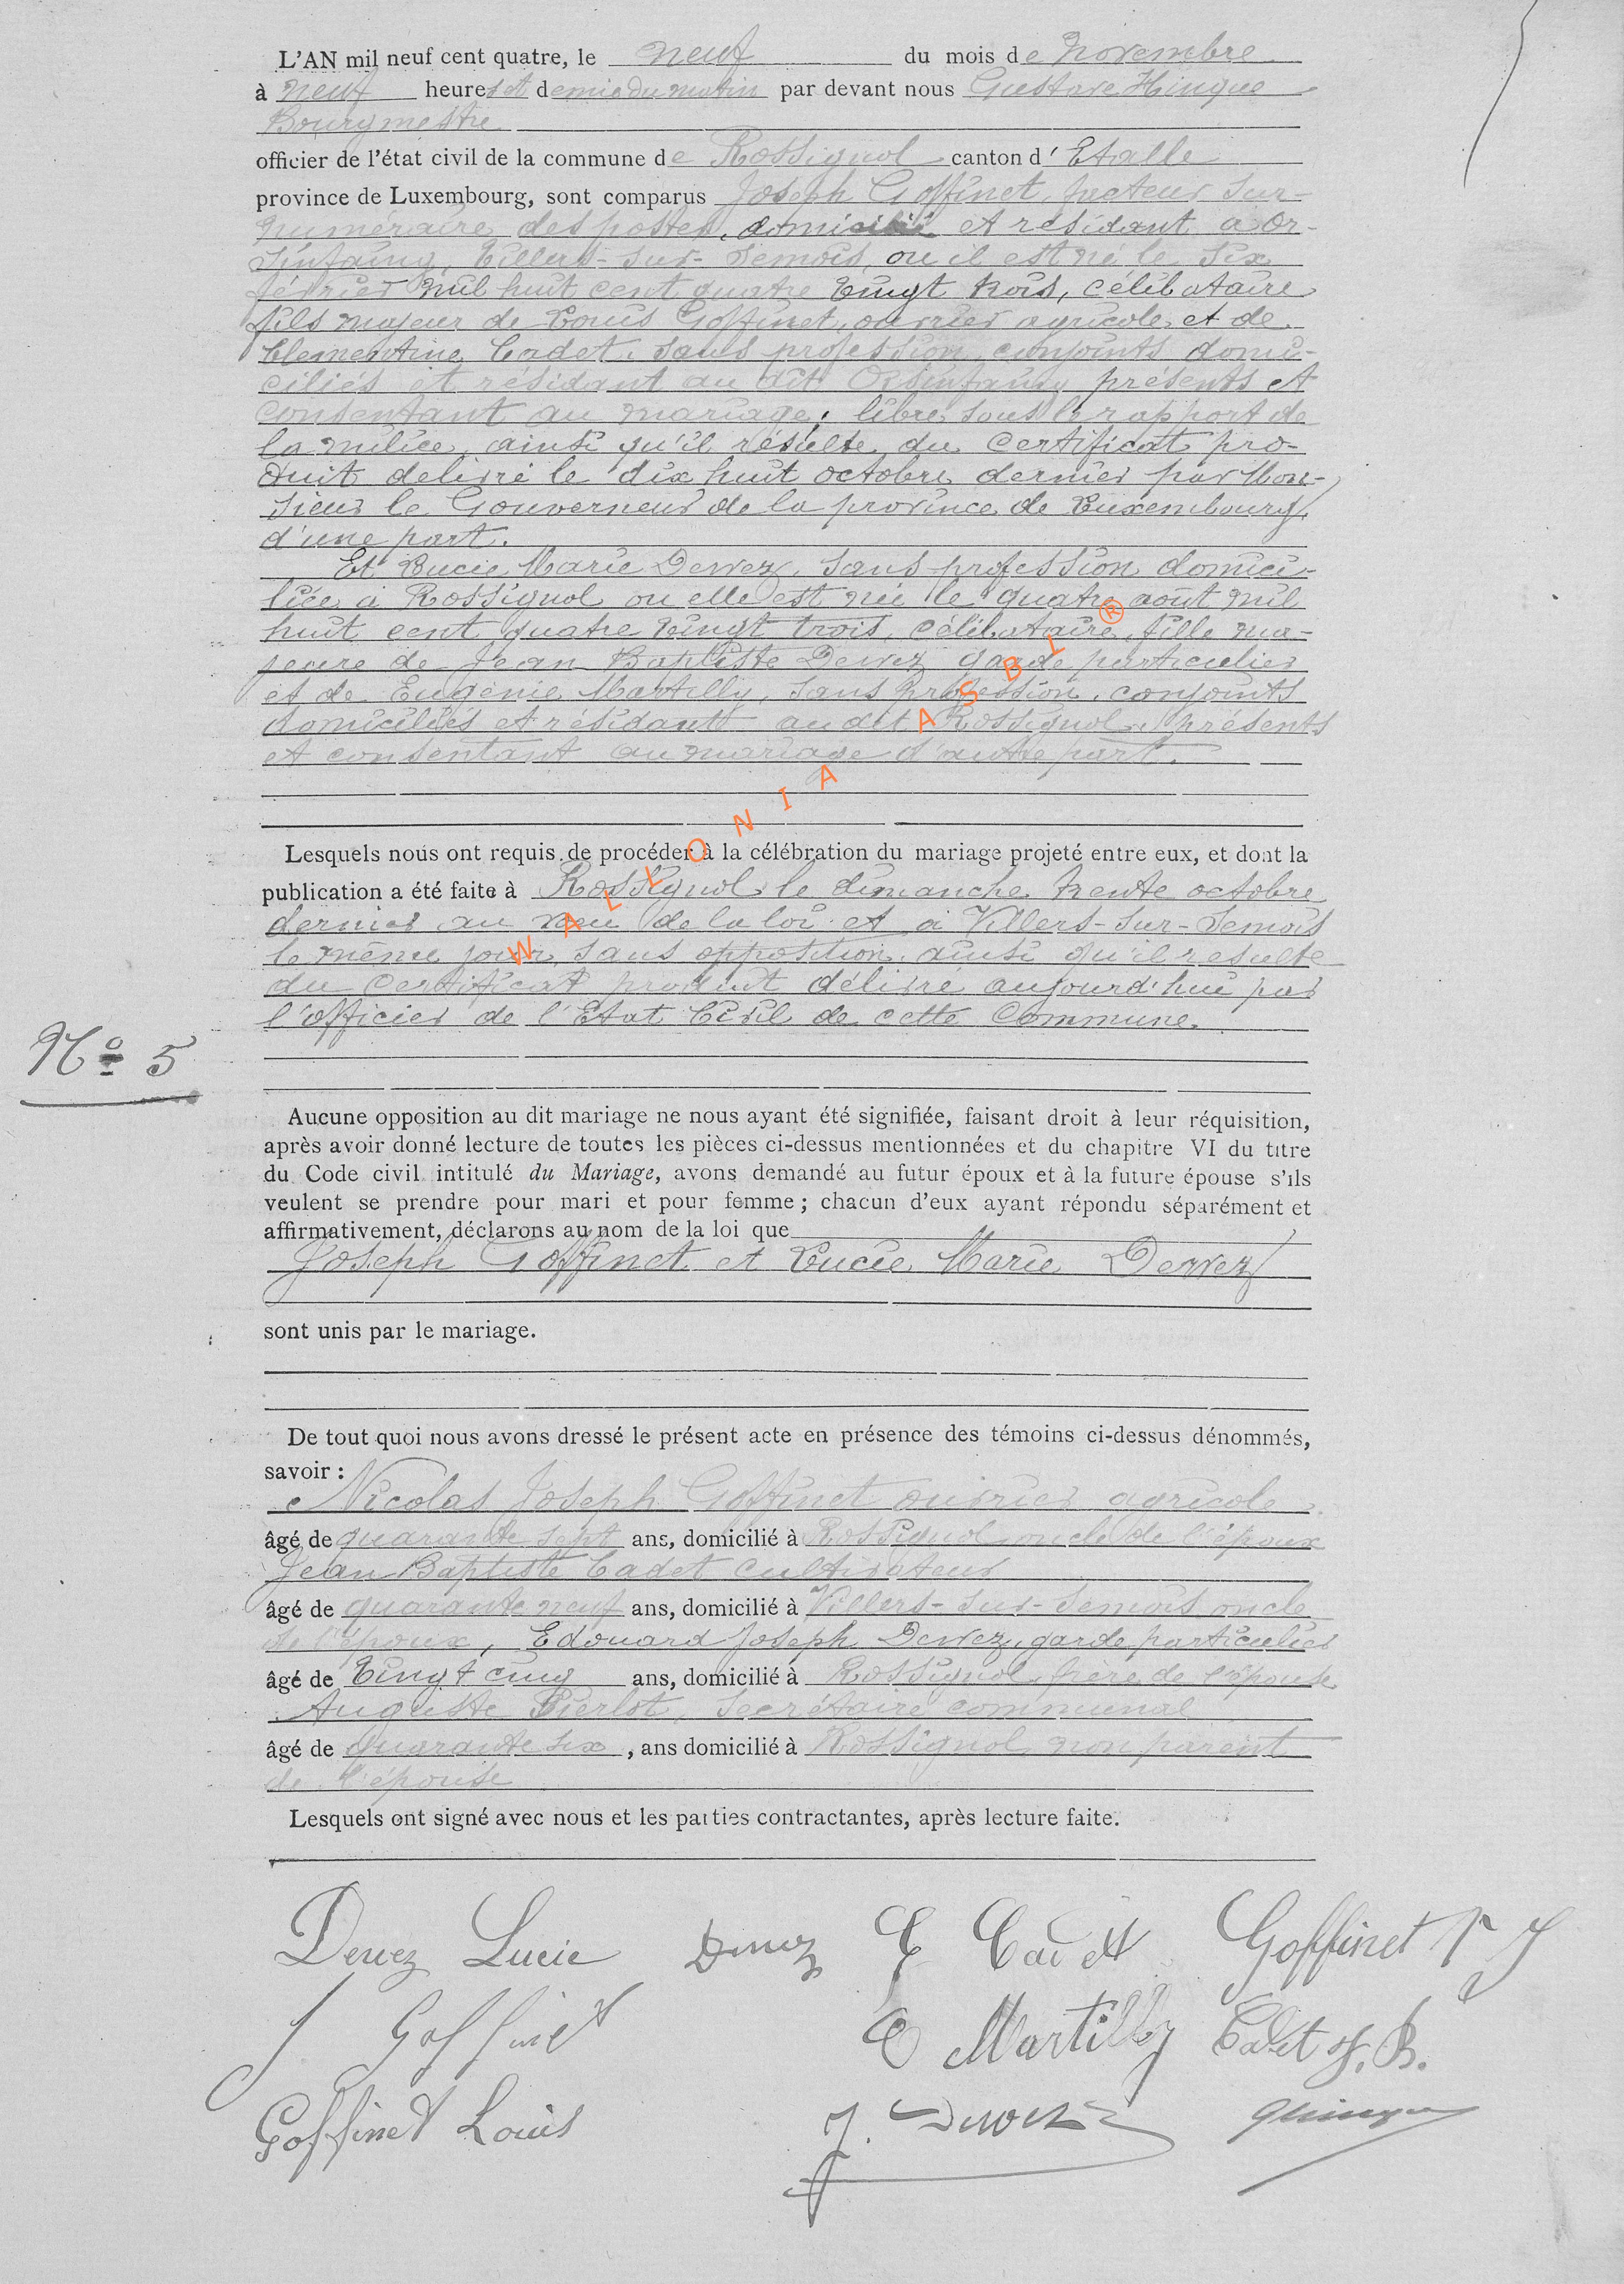 L'AN mil neuf cent quatre, le neuf du mois de novembre
à neuf heures et demie du matin par devant nous Gustave Hinque
Bourgmestre
officier de l'état civil de la commune de Rossignol canton d'Etalle
province de Luxembourg, sont comparus Joseph Goffinet, facteur sur-
numéraire des postes, domicilié et résidant à Or-
sinfaing, Villers-sur-Semois, où il est né le six
février mil huit cent quatre vingt trois, célibataire
fils majeur de Louis Goffinet, ouvrier agricole, et de
Clementine Cadet, sans profession conjoints domi-
ciliés et résidant au dit Orsinfaing présents et
consentant au mariage; libre sous le rapport de
la milice, ainsi qu'il résulte du certificat pro-
duit délivré le dix huit octobre dernier par Mon-
sieur le Gouverneur de la province de Luxembourg,
d'une part.
Et Lucie Marie Dervez, sans profession domici-
liée à Rossignol où elle est née le quatre août mil
huit cent quatre vingt trois, célibataire, fille ma-
jeure de Jean Baptiste Dervez garde particulier
et de Eugénie Martilly, sans profession, conjoints
domiciliés et résidant au dit Rossignol, présents
et consentant au mariage d'autre part.
WALLONIA ASBL ®
Lesquels nous ont requis de procéder à la célébration du mariage projeté entre eux, et dont la
publication a été faite à Rossignol le dimanche trente octobre
dernier au vœu de la loi et à Villers-sur-Semois
le même jour, sans opposition, ainsi qu'il resulte
du certificat produit délivré aujourd'hui par
l'officier de l'Etat Civil de cette Commune.
No 5
Aucune opposition au dit mariage ne nous ayant été signifiée, faisant droit à leur réquisition,
après avoir donné lecture de toutes les pièces ci-dessus mentionnées et du chapitre VI du titre
du Code civil intitulé du Mariage, avons demandé au futur époux et à la future épouse s'ils
veulent se prendre pour mari et pour femme ; chacun d'eux ayant répondu séparément et
affirmativement, déclarons au nom de la loi que
Joseph Goffinet et Lucie Marie Dervez
sont unis par le mariage.
De tout quoi nous avons dressé le présent acte en présence des témoins ci-dessus dénommés,
savoir :
Nicolas Joseph Goffinet ouvrier agricole
âgé de quarante sept ans, domicilié à Rossignol oncle de l'époux
Jean Baptiste Cadet cultivateur
âgé de quarante neuf ans, domicilié à Villers-sur-Semois oncle
de l'époux, Edouard Joseph Dervez, garde particulier
âgé de vingt cinq ans, domicilié à Rossignol, frère de l'épouse
Auguste Pierlot, secrétaire communal
âgé de quarante six , ans domicilié à Rossignol, non parent
de l'épouse
Lesquels ont signé avec nous et les parties contractantes, après lecture faite.
Dervez Lucie Dervez C Cadet Goffinet N J
J Goffinet E Martilly Cadet J. B.
Goffinet Louis J. Dervez GHinque